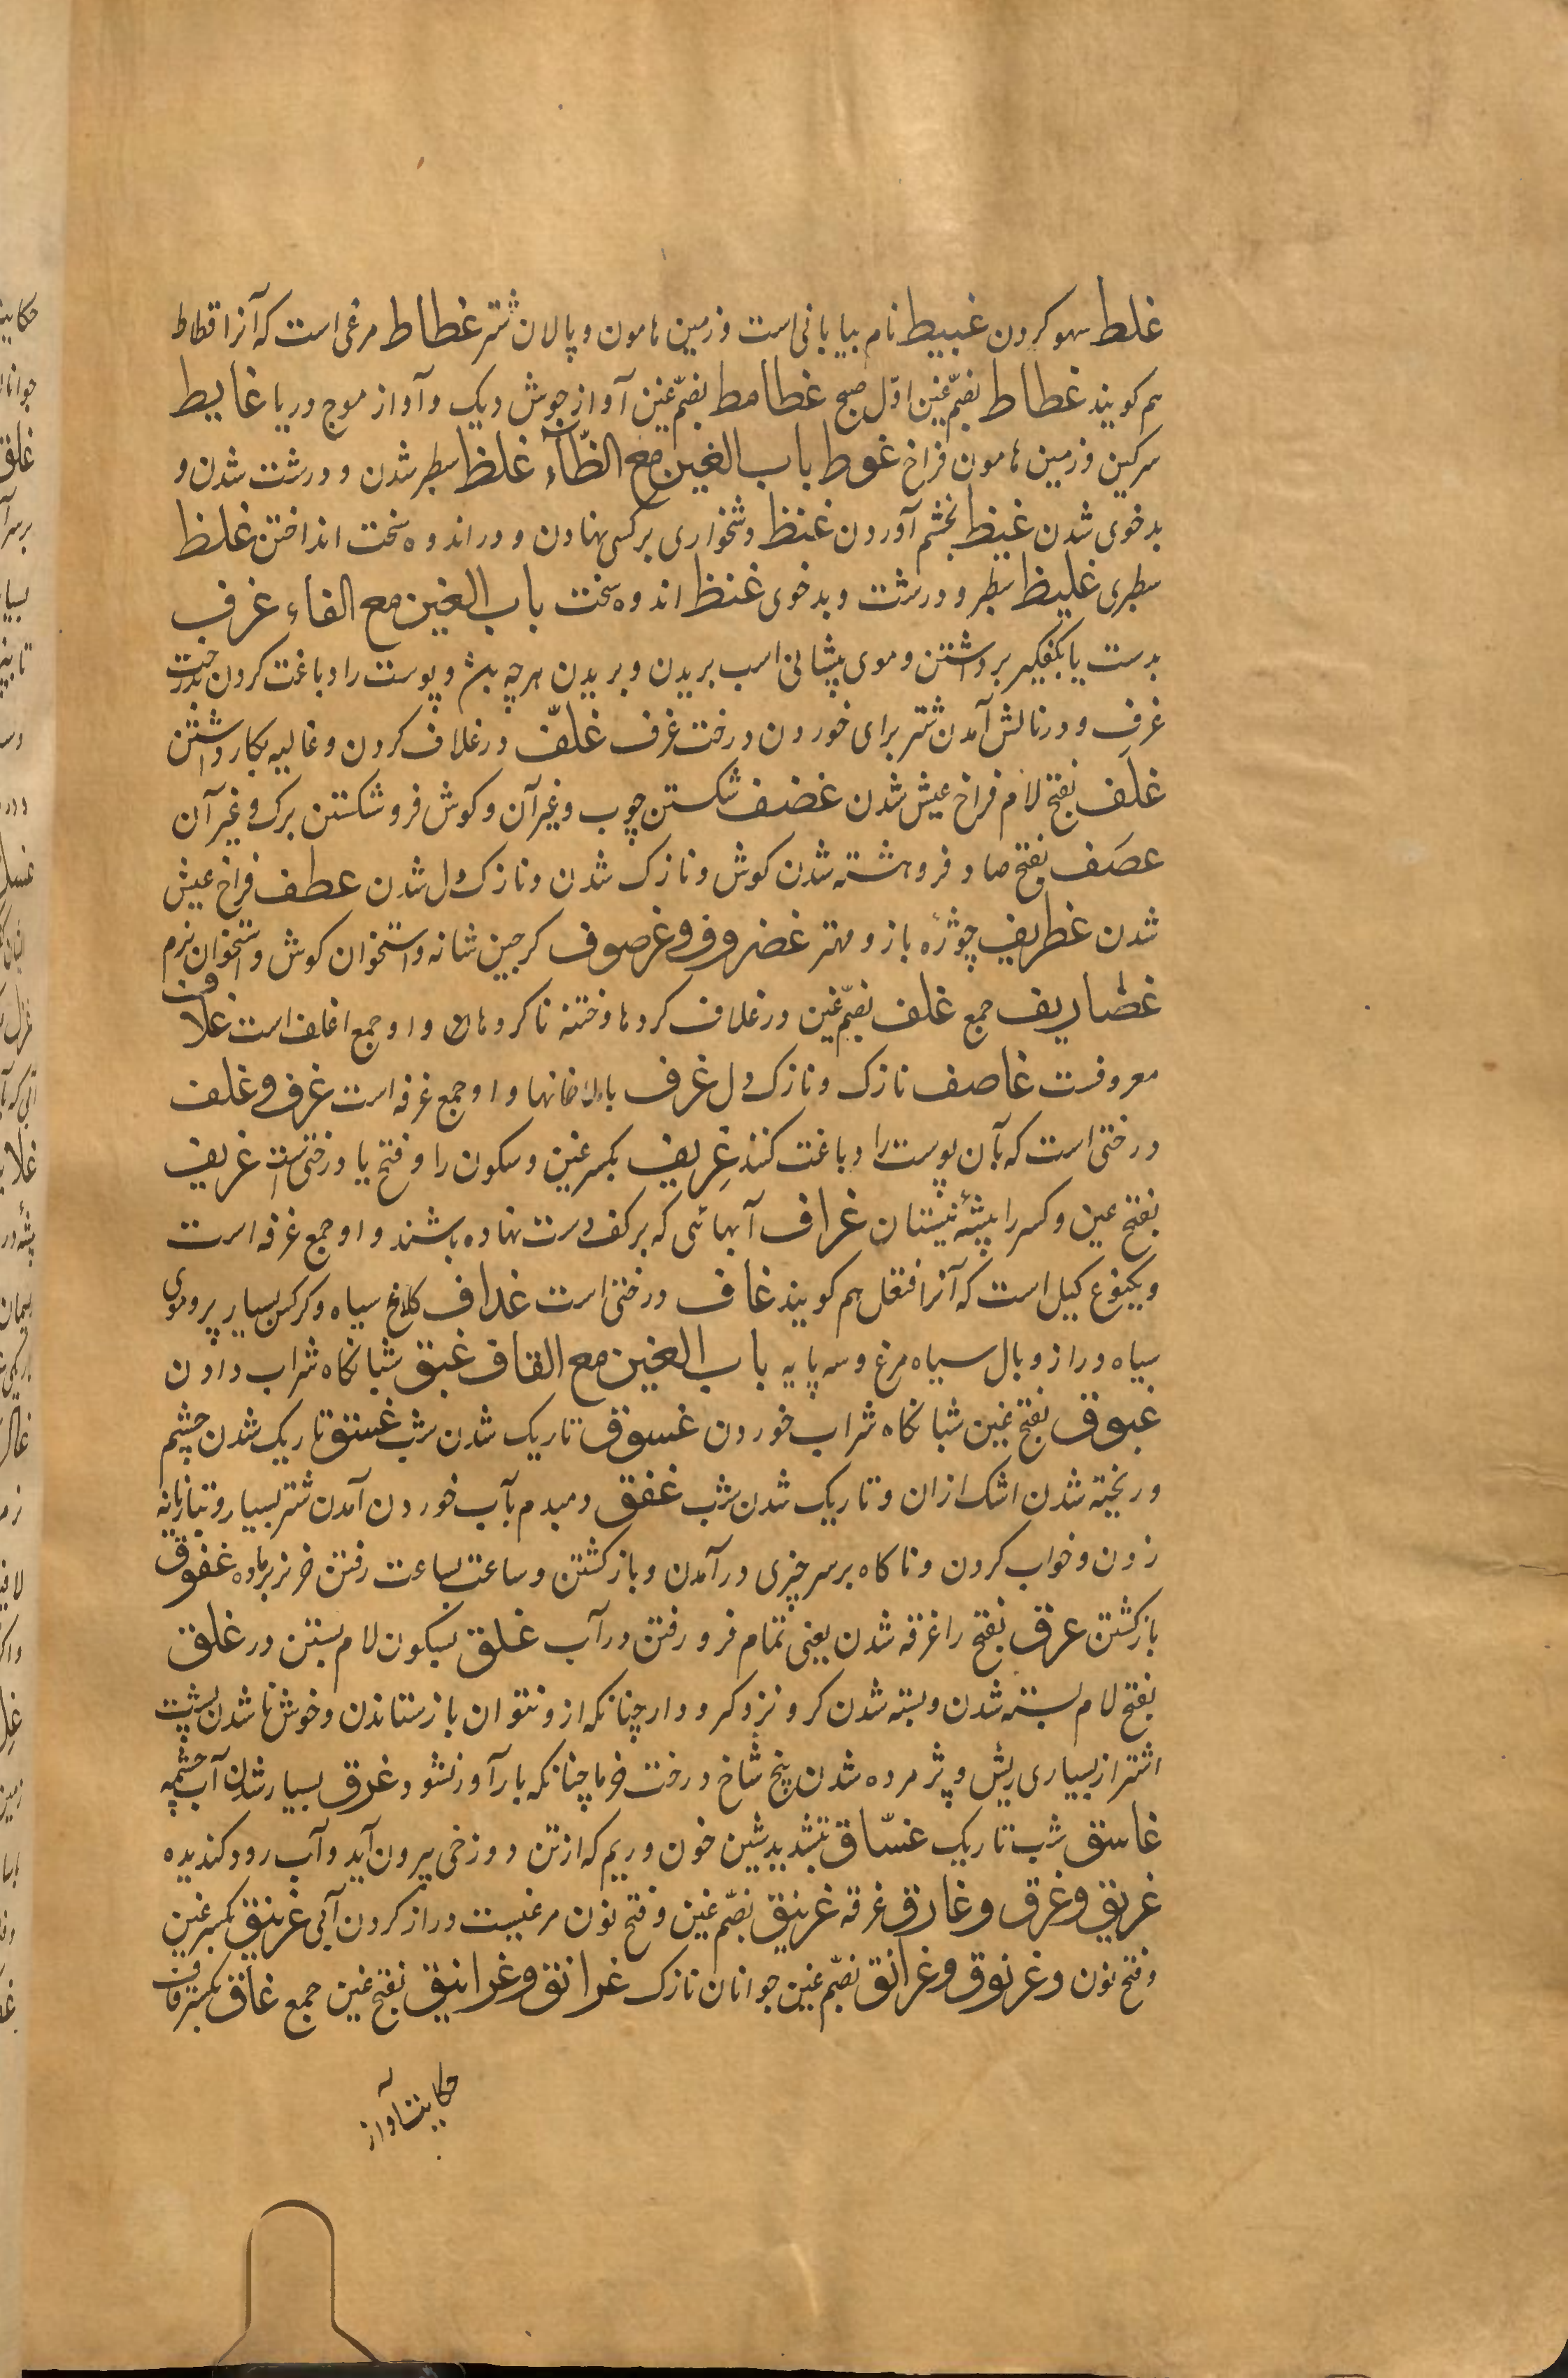 غلط سهو کردن غبیط نام بیابانی است و زمین هامون و پالان شتر غطاط مرغی است که آنرا قطاط
هم کویند غطاط بضمّ غین اوّل صبح غطامط بضمّ غین آواز جوش دیک و آواز موج دریا غایط
سرکین و زمین هامون فراخ غوط باب الغین مع الظّآء غلظ سطبر شدن و درشت شدن و
بدخوی شدن غیظ بخشم آوردن غنظ دشخواری برکسی نهادن و در اندوه سخت انداختن غلظ
سطبری غلیظ سطبر و درشت و بدخوی غنظ اندوه سخت باب الغین مع الفاء غرف
بدست یا بکفکیر برداشتن و موی پیشانی اسب بریدن و بریدن هرچه باشد و پوست را دباغت کردن بدرخت
غرف و در نالش آمدن شتر برای خوردن درخت غرف غلّف در غلاف کردن و غالیه بکار داشتن
غلَف بفتح لام فراخ عیش شدن غضف شکستن چوب و غیر آن و کوش فرو شکستن برک و غیر آن
عصَف بفتح صاد فروهشته شدن کوش و نازک شدن و نازک دل شدن عطف فراخ عیش
شدن غطریف چوژۀ باز و مهتر غضروف و غرصوف کرجین شانه و استخوان کوش و استخوان نرم
غضاریف جمع غلف بضمّ غین در غلاف کردها و ختنه ناکردهان و او جمع اغلف است غلاف
معروفست غاصف نازک و نازک دل غرف بالاخانها و او جمع غرفه است غرف و غلف
درختی است که بآن پوست را دباغت کنند غِریف بکسر غین و سکون را و فتح یا درختی است غریف
بفتح عین و کسر را بیشۀ نیستان غراف آبهائی که برکف دست نهاده باشند و او جمع غرفه است
و یکنوع کیل است که آنرا فنقل هم کویند غاف درختی است غداف کلاغ سیاه و کرکس بسیار پر و موی
سیاه دراز و بال سیاه مرغ و سه پایه باب الغین مع القاف غبق شبانکاه شراب دادن
غبوق بفتح غین شبانکاه شراب خوردن غسوق تاریک شدن شب غسق تاریک شدن چشم
و ریخته شدن اشک ازان و تاریک شدن شب غفق دمبدم بآب خوردن آمدن شتر بسیار و تبازیانه
زدن و خواب کردن و ناکاه برسر چیزی درآمدن و بازکشتن و ساعت بساعت رفتن خر نر بر ماده غفوق
بازکشتن غرق بفتح را غرقه شدن یعنی تمام فرو رفتن در آب غلق بسکون لام بستن در غلق
بفتح لام بسته شدن و بسته شدن کرو نزد کرودار چنانکه ازو نتوان بازستاندن و خوش ناشدن پشت
اشتر از بسیاری ریش و پژمرده شدن پنج شاخ درخت خرما چنانکه بارآور نشود غدق بسیار شدن آب چشمه
غاسق شب تاریک غسّاق بتشدید شین خون و ریم که از تن دوزخی بیرون آید و آب رود کندیده
غریق و غرق و غارق غرقه غرنیق بضمّ غین و فتح نون مرغیست دراز کردن آبی غرنیق بکسر غین
و فتح نون و غرنوق و غرانق بضمّ غین جوانان نازک غرانق و غرانیق بفتح غین جمع غاق بکسر قاف
حکایت آواز